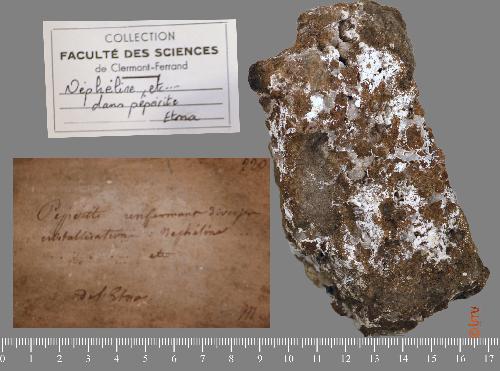 COLLECTION
FACULTÉ DES SCIENCES
de Clermont-Ferrand
Néphéline, etc...
dans pépérite
Etna
220
Pépérite renfermant diverses
cristallisation : Nephéline
etc
de l'Etna
0 1 2 3 4 5 6 7 8 9 10 11 12 13 14 15 16 17